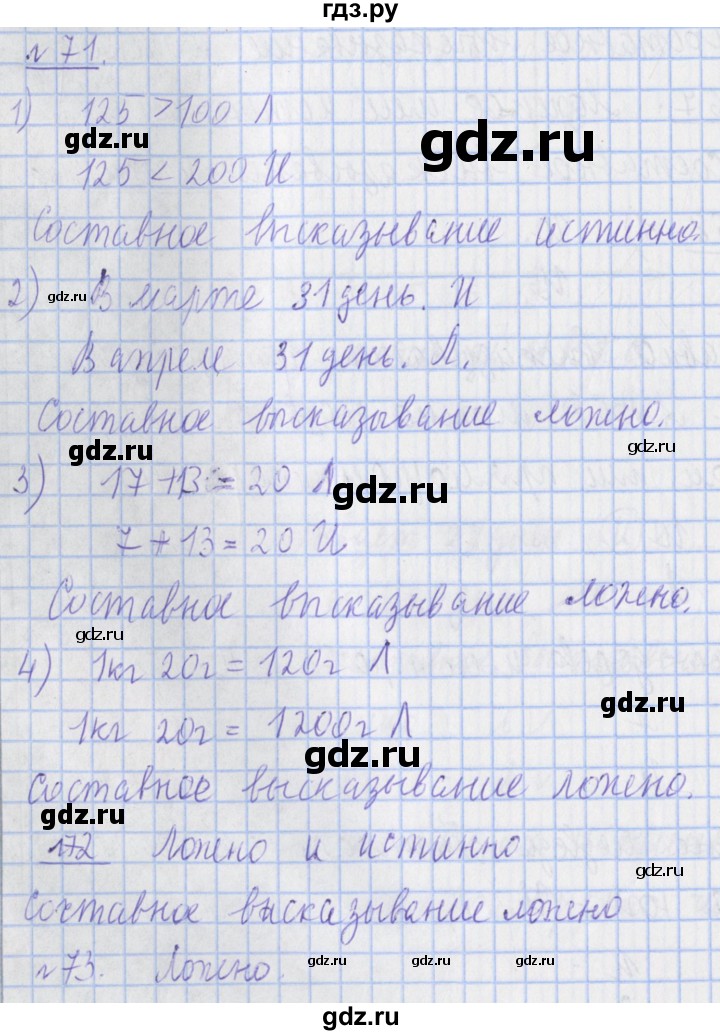 гдз.ру
№ 71.
1) 125 > 100 Л
gdz.ru
gdz.ru
125 < 200 И
Составное высказывание истинно.
2) В марте 31 день. И
gdz.ru
В апреле 31 день. Л.
Составное высказывание ложно.
gdz.ru
gdz.ru
3) 17 + 13 = 20 Л
gdz.ru
7 + 13 = 20 И
Составное высказывание ложно.
gdz.ru
4) 1кг 20г = 120г Л
gdz.ru
1кг 20г = 1200г Л
gdz.ru
Составное высказывание ложно.
gdz.ru
172 Ложно и истинно
gdz.ru
Составное высказывание ложно
№ 73. Ложно.
gdz.ru gdz.ru gdz.ru
gdz.ru